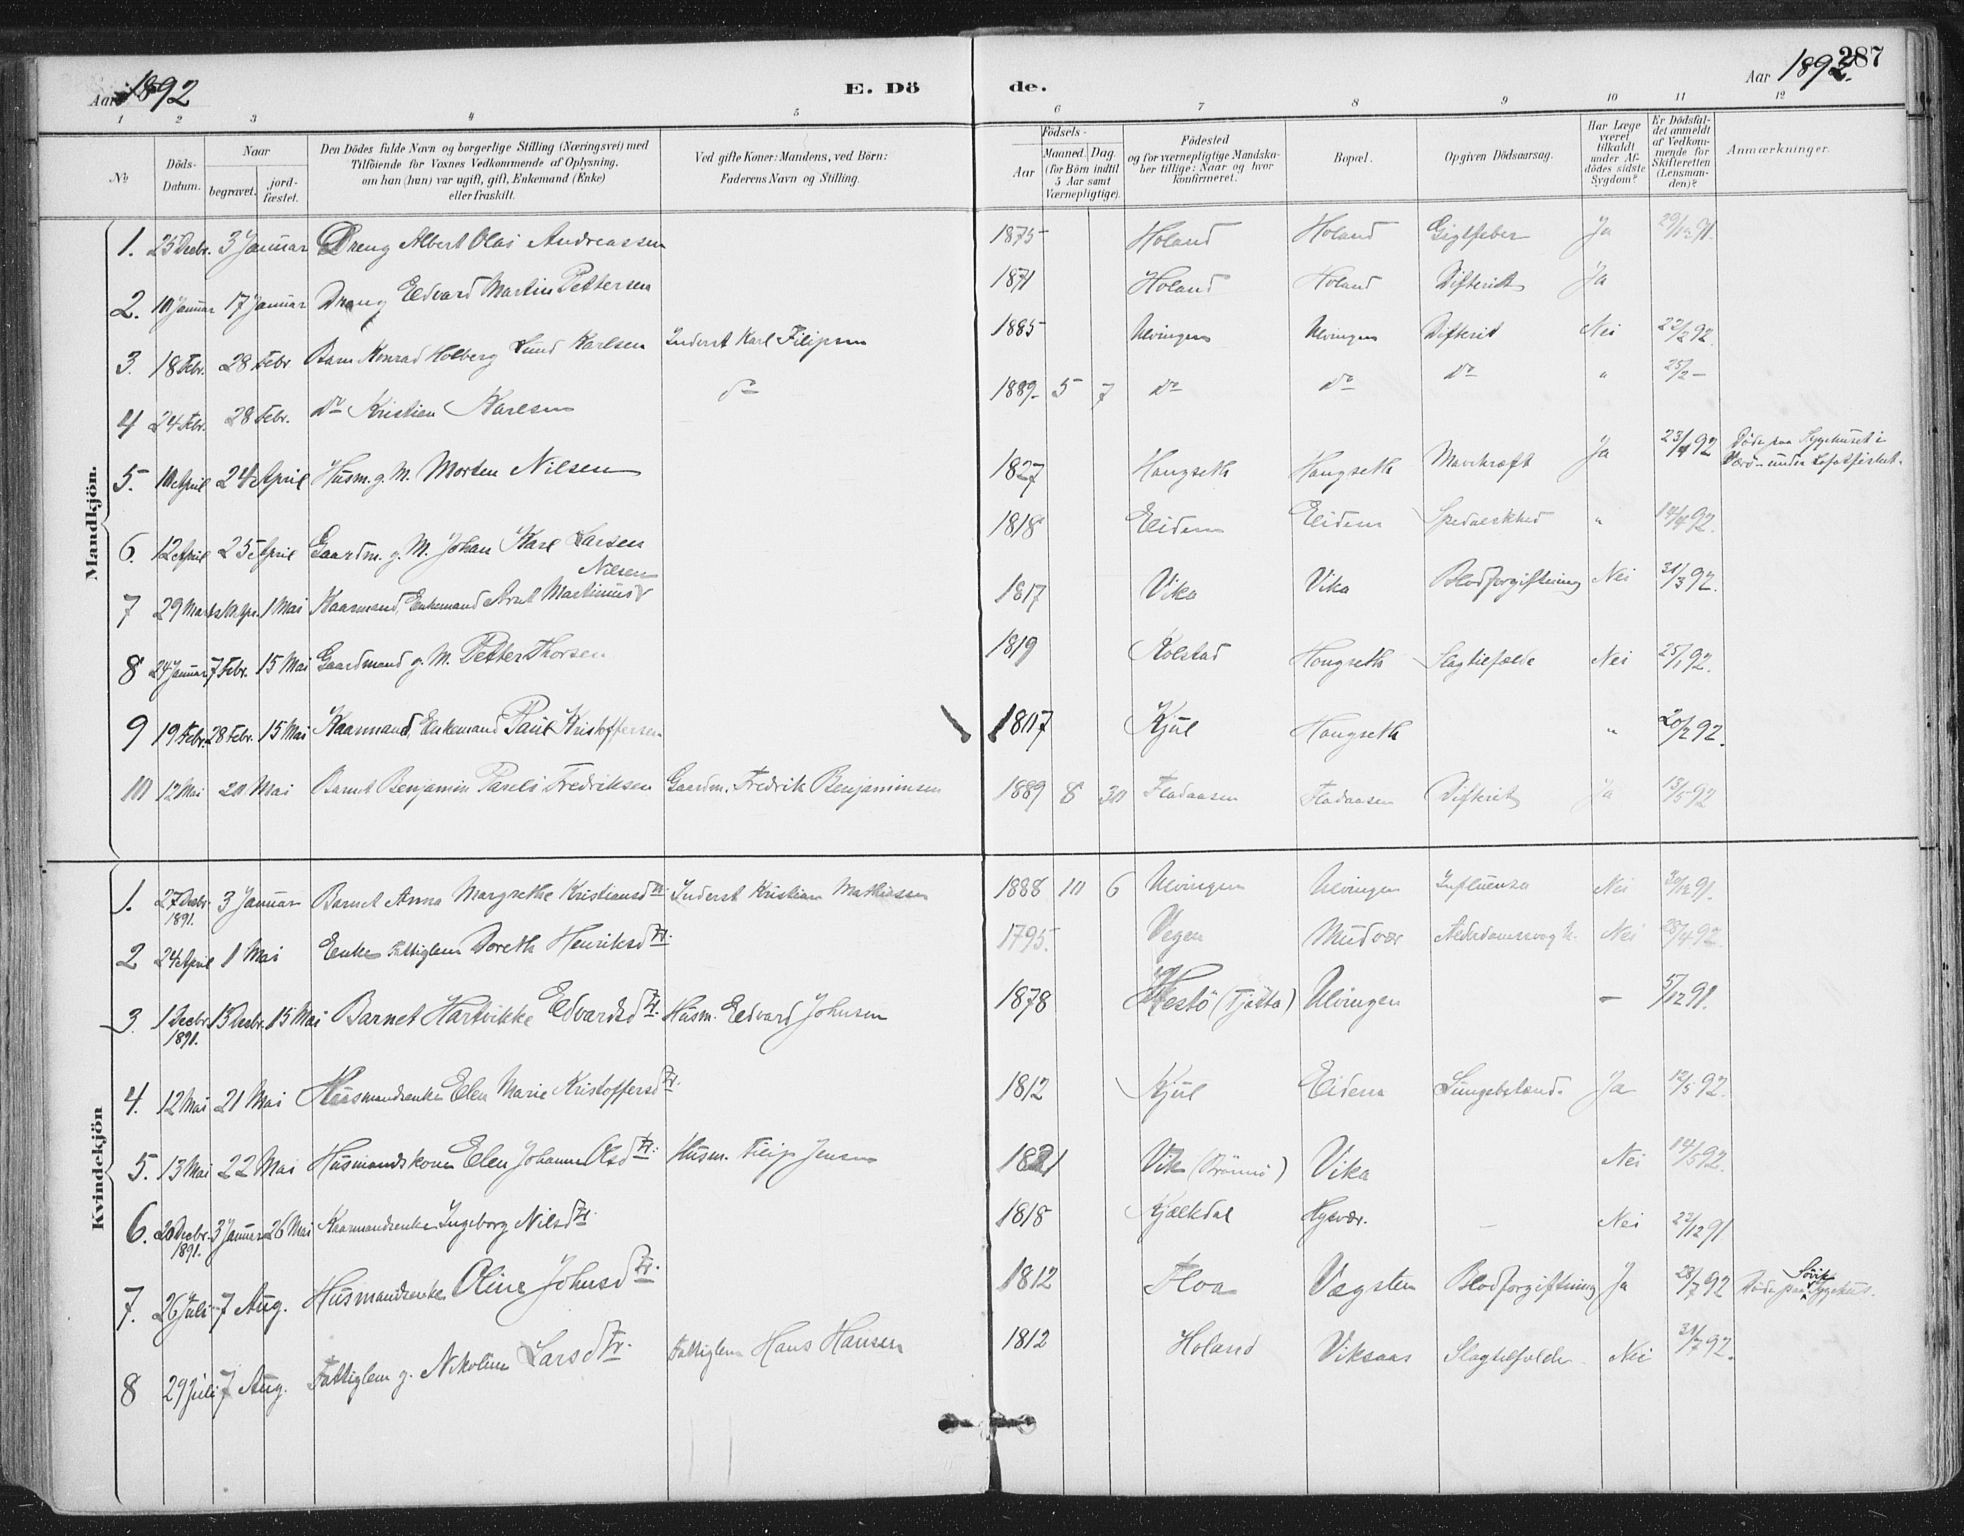 Aar 1892
E. Döde.
Aar 1892.
287
1 2 3 4 5 6 7 8 9 10 11 12
№ | Döds-Datum. | Naar begravet. | jord-fæstet. | Den Dödes fulde Navn og borgerlige Stilling (Næringsvei) med Tilföiende för Voxnes Vedkommende af Oplysning, om han (hun) var ugift, gift, Enkemand (Enke) eller fraskilt. | Ved gifte Koner: Mandens, ved Börn: Faderens Navn og Stilling. | Födsels- Aar | Maaned. | Dag. (for Börn indtil 5 Aar samt Værnepligtige). | Födested og for værnepligtige Mandskaber tillige: Naar og hvor konfirmeret. | Bopæl. | Opgiven Dödsaarsag. | Har Læge været tilkaldt under Afdödes sidste Sygdom? | Er Dödsfaldet anmeldt af Vedkommende for Skifteretten (Lensmanden)? | Anmærkninger.
Mandkjön.
1. 25 Decbr. 3 Januar Dreng Albert Olai Andreassen 1875 Holand Holand Gigtfeber Ja 29/12 91.
2. 10 Januar 17 Januar Dreng Edvard Martin Pettersen 1871 Holand Holand Difterit Ja
3. 18 Febr. 28 Febr Barn Konrad Holberg Lund Karlsen Inderst Karl Filipsen 1885 Ulvingen Ulvingen Difterit Nei 22/2 92.
4 24 Febr. 28 Febr. do Kristian Karlsen do 1889 5 7 do do do " 25/2 –
5. 10 April 24 April Husm. g. M. Morten Nilsen 1827 Hongseth Hongseth Mavekræft Ja 23/4 92 Döde paa Sygehuset i Værö under Lofotfisket.
6. 12 April 25 April Gaardm. g. M. Johan Karl Larsen 1818 Eidem Eidem Spedalskhed " 14/4 92.
7 29 Marts 10 Apr. 1 Mai Kaarmand, Enkemand Arnt Martinus Nilsen 1817 Vika Vika Blodforgiftning Nei 31/3 92.
8 24 Januar 7 Febr. 15 Mai Gaardmand g. M. Petter Thorsen 1819 Kolstad Hongseth Slagtilfælde Nei 25/1 92.
9 19 Febr. 28 Febr. 15 Mai Kaarmand, Enkemand Paul Kristoffersen 1807 Kjul Hongseth " 20/2 92.
10 12 Mai 20 Mai Barnet Benjamin Parelі Fredriksen Gaardm. Fredrik Benjaminsen 1889 8 30 Fladaasen Fladaasen Difterit Ja 13/5 92
Kvindekjön
1. 27 Decbr. 1891. 3 Januar Barnet Anna Margrethe Kristiansdtr. Inderst Kristian Mathiassen 1888 10 6 Ulvingen Ulvingen Influenza Nei 30/12 91.
2 24 April 1 Mai Enke Fattiglem Doreth Henriksdtr. 1795. Vegen Mudvær Nei 28/4 92.
3. 1 Decbr. 1891. 13 Decbr. 15 Mai Barnet Hartvikke Edvardsdtr. Husm. Edvard Johnsen 1878 Hestö (Tjötta) Ulvingen – 5/12 91.
4. 12 Mai 21 Mai Husmandsenke Elen Marie Kristoffersdtr. 1812 Kjul Eidem Lungebetænd. Ja 12/5 92.
5. 13 Mai 22 Mai Husmandskone Elen Johanna Olsdtr. Husm. Filip Jensen 1821 Vik (Brönnö) Vika Nei 14/5 92.
6. 20 Decbr. 1891. 3 Januar 26 Mai Kaarmandsenke Ingeborg Nilsdtr. 1818 Kjælkdal Hysvær. – Nei 22/12 91
7. 26 Juli 7 Aug. Husmandsenke Oline Johnsdtr. 1812 Floa Vægsten Blodforgiftning Ja 28/7 92 Döde paa Sövik Sygehus.
8 29 Juli 7 Aug. Fattiglem g. Nikoline Larsdtr. Fattiglem Hans Hansen 1812 Holand Viksaas Slagtilfælde Nei 31/7 92.